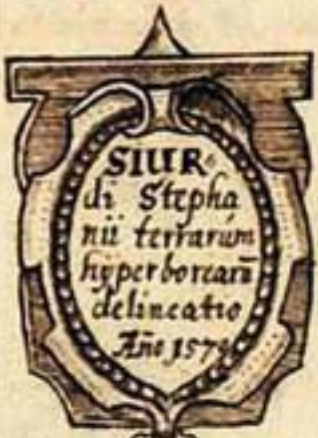 SIUR-
di Stepha
nii terrarum
hyperborearū
delineatio
Año 1579